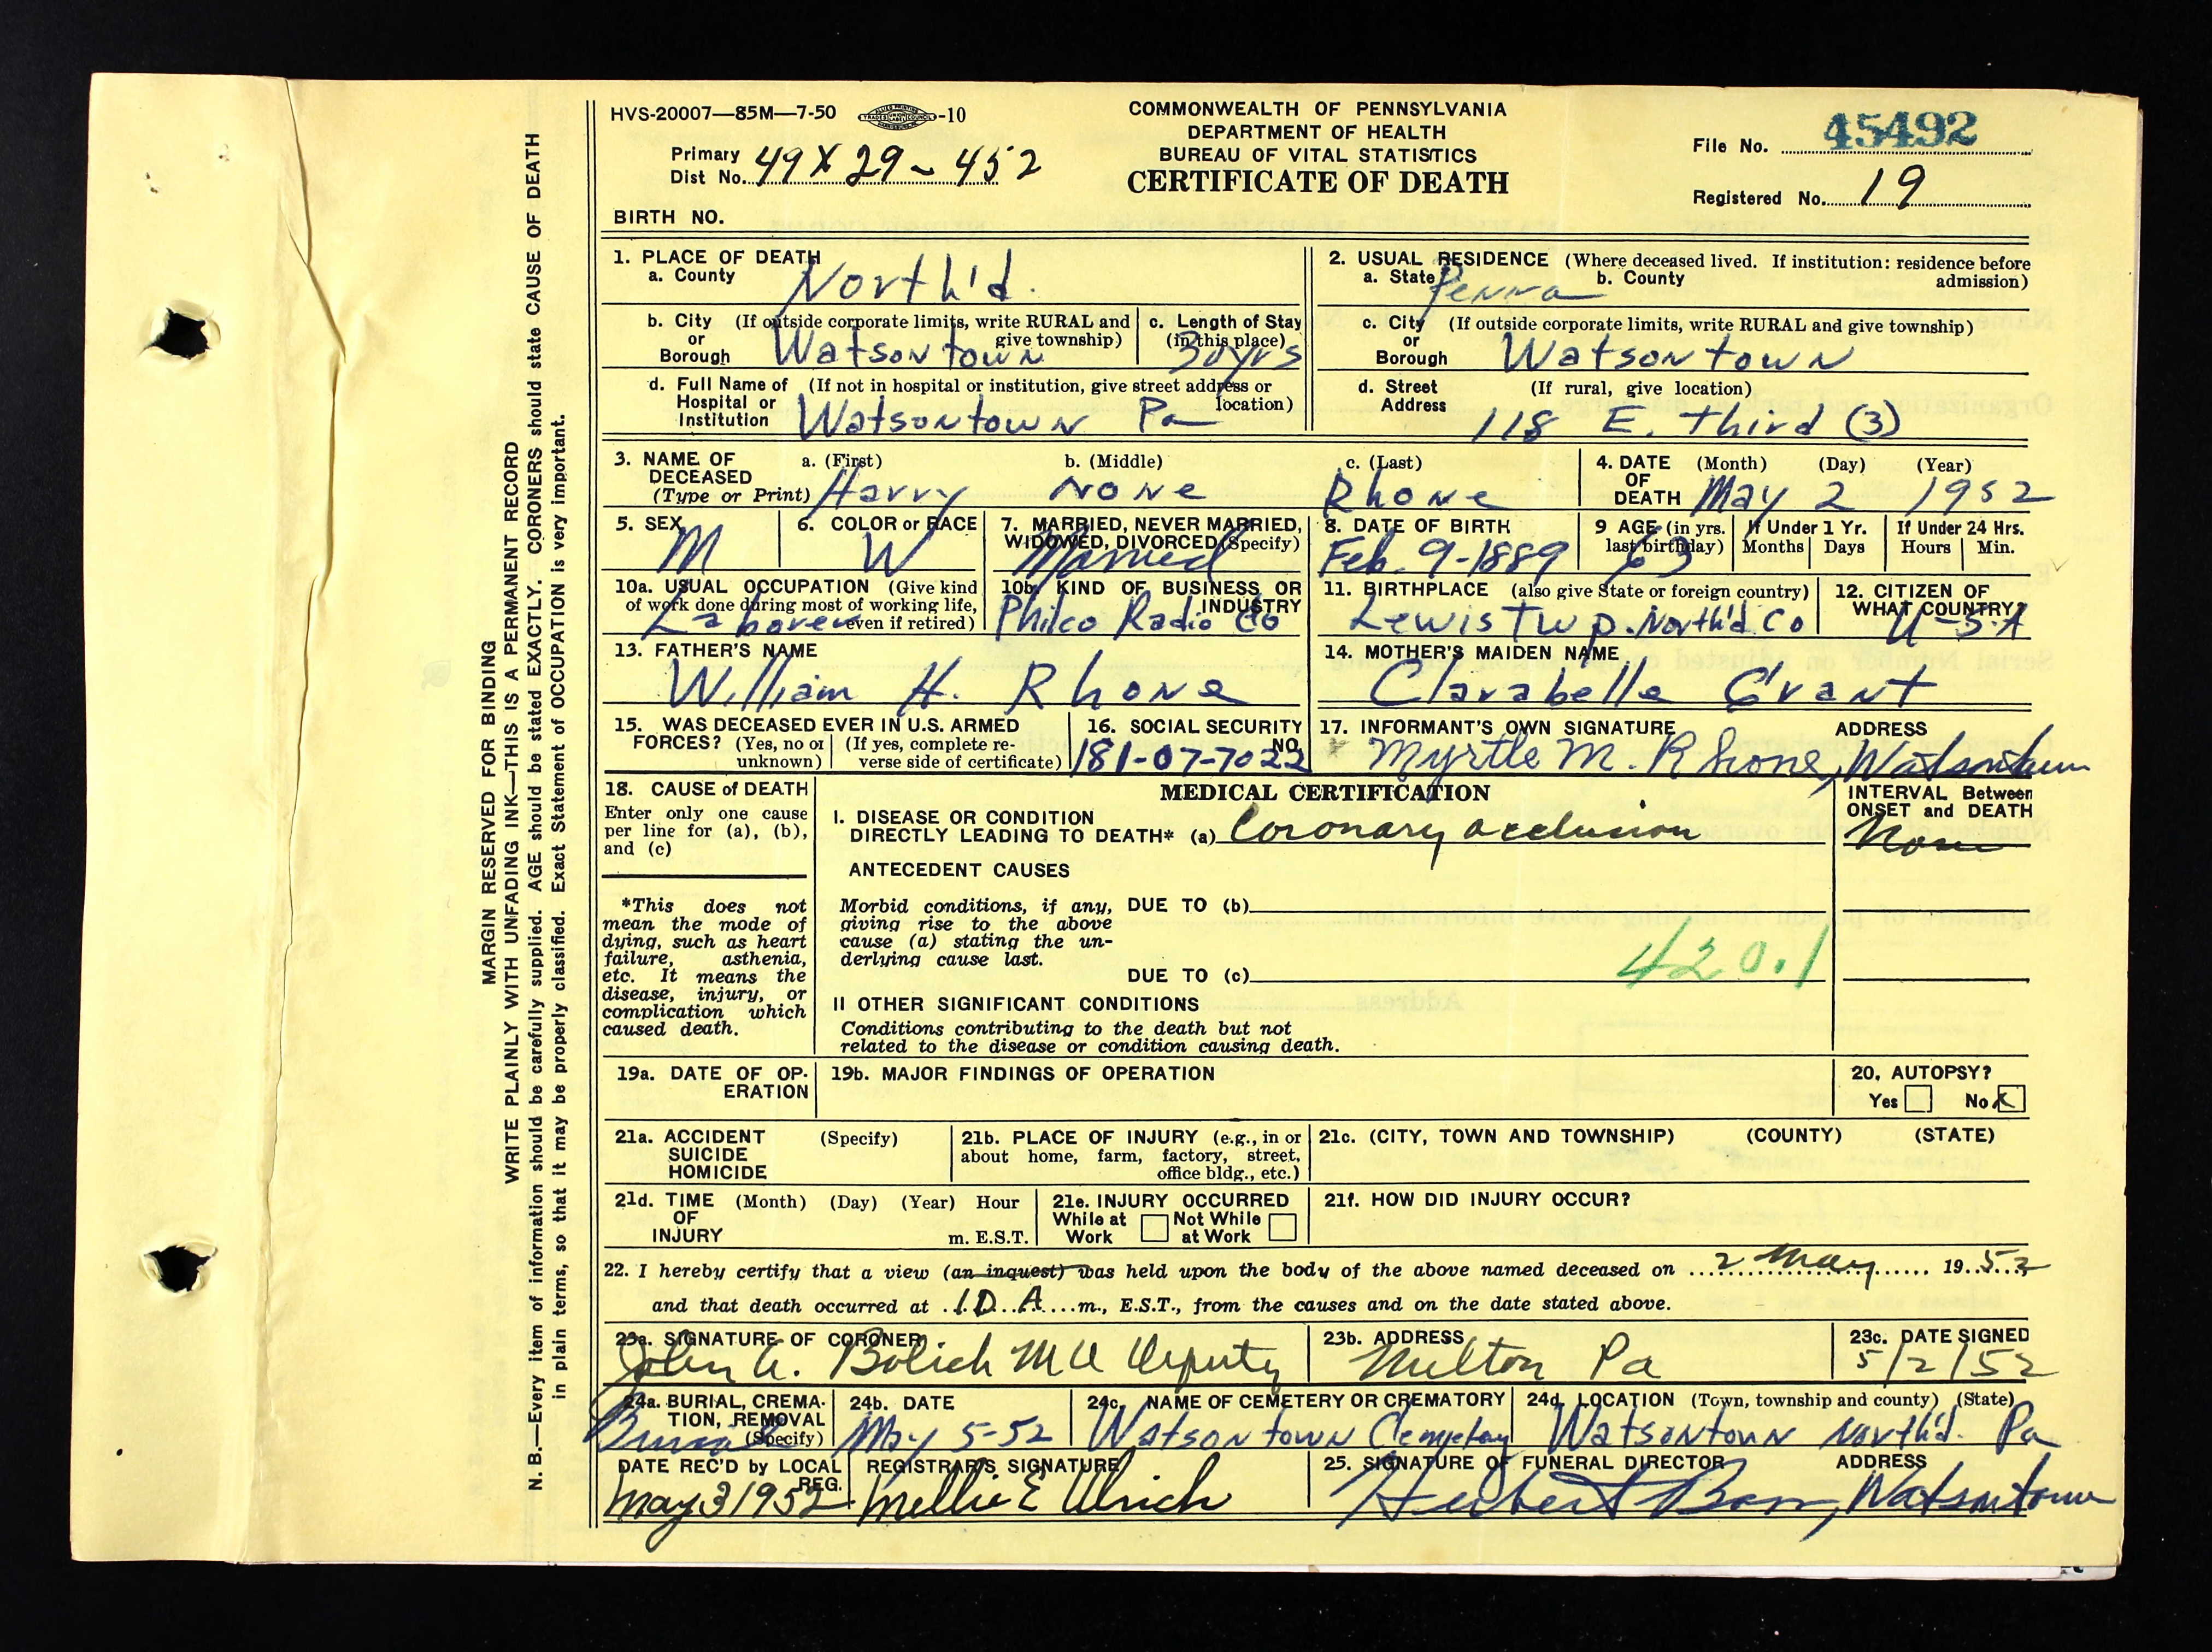 HVS-20007—85M—7-50 -10
COMMONWEALTH OF PENNSYLVANIA
DEPARTMENT OF HEALTH
BUREAU OF VITAL STATISTICS
CERTIFICATE OF DEATH
File No. 45492
Primary Dist No. 49X29-452
Registered No. 19
BIRTH NO.
1. PLACE OF DEATH
a. County North'd.
2. USUAL RESIDENCE (Where deceased lived. If institution: residence before admission)
a. State Penna b. County
b. City or Borough (If outside corporate limits, write RURAL and give township) Watsontown
c. Length of Stay (in this place) 30 yrs
c. City or Borough (If outside corporate limits, write RURAL and give township) Watsontown
d. Full Name of Hospital or Institution (If not in hospital or institution, give street address or location) Watsontown Pa
d. Street Address (If rural, give location) 118 E. Third (3)
3. NAME OF DECEASED (Type or Print)
a. (First) Harry b. (Middle) None c. (Last) Rhone
4. DATE OF DEATH (Month) (Day) (Year) May 2 1952
5. SEX M
6. COLOR or RACE W
7. MARRIED, NEVER MARRIED, WIDOWED, DIVORCED (Specify) Married
8. DATE OF BIRTH Feb. 9-1889
9 AGE (in yrs. last birthday) 63
If Under 1 Yr. Months Days
If Under 24 Hrs. Hours Min.
10a. USUAL OCCUPATION (Give kind of work done during most of working life, even if retired) Laborer
10b. KIND OF BUSINESS OR INDUSTRY Philco Radio Co
11. BIRTHPLACE (also give State or foreign country) Lewis Twp. North'd. Co
12. CITIZEN OF WHAT COUNTRY? U-S-A
13. FATHER'S NAME William H. Rhone
14. MOTHER'S MAIDEN NAME Clarabelle Grant
15. WAS DECEASED EVER IN U.S. ARMED FORCES? (Yes, no or unknown) (If yes, complete reverse side of certificate)
16. SOCIAL SECURITY NO. 181-07-7022
17. INFORMANT'S OWN SIGNATURE ADDRESS
Myrtle M. Rhone, Watsontown
18. CAUSE of DEATH
Enter only one cause per line for (a), (b), and (c)
*This does not mean the mode of dying, such as heart failure, asthenia, etc. It means the disease, injury, or complication which caused death.
MEDICAL CERTIFICATION
INTERVAL Between ONSET and DEATH
None
I. DISEASE OR CONDITION
DIRECTLY LEADING TO DEATH* (a) Coronary occlusion
ANTECEDENT CAUSES
Morbid conditions, if any, giving rise to the above cause (a) stating the underlying cause last.
DUE TO (b)
420.1
DUE TO (c)
II OTHER SIGNIFICANT CONDITIONS
Conditions contributing to the death but not related to the disease or condition causing death.
19a. DATE OF OPERATION
19b. MAJOR FINDINGS OF OPERATION
20. AUTOPSY?
Yes No X
21a. ACCIDENT SUICIDE HOMICIDE (Specify)
21b. PLACE OF INJURY (e.g., in or about home, farm, factory, street, office bldg., etc.)
21c. (CITY, TOWN AND TOWNSHIP) (COUNTY) (STATE)
21d. TIME OF INJURY (Month) (Day) (Year) Hour m. E.S.T.
21e. INJURY OCCURRED
While at Work Not While at Work
21f. HOW DID INJURY OCCUR?
22. I hereby certify that a view (an inquest) was held upon the body of the above named deceased on 2 May 1952
and that death occurred at 10 A m., E.S.T., from the causes and on the date stated above.
23a. SIGNATURE OF CORONER John A. Bolich MD Deputy
23b. ADDRESS Milton Pa
23c. DATE SIGNED 5/2/52
24a. BURIAL, CREMATION, REMOVAL (Specify) Burial
24b. DATE May 5-52
24c. NAME OF CEMETERY OR CREMATORY Watsontown Cemetery
24d. LOCATION (Town, township and county) (State) Watsontown North'd. Pa
DATE REC'D by LOCAL REG. May 3 1952
REGISTRAR'S SIGNATURE Mellie E Ulrich
25. SIGNATURE OF FUNERAL DIRECTOR ADDRESS
Herbert Watsontown
MARGIN RESERVED FOR BINDING
WRITE PLAINLY WITH UNFADING INK—THIS IS A PERMANENT RECORD
N. B.—Every item of information should be carefully supplied. AGE should be stated EXACTLY. CORONERS should state CAUSE OF DEATH
in plain terms, so that it may be properly classified. Exact Statement of OCCUPATION is very important.